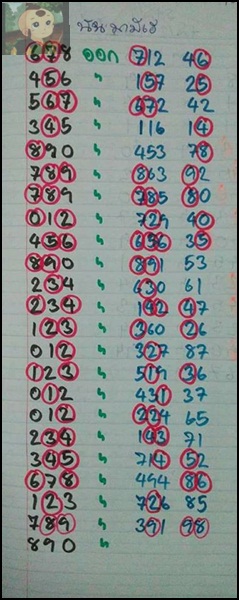 678 ออก 712 46
456 " 157 25
567 " 672 42
345 " 116 14
890 " 453 78
789 " 863 92
789 " 785 80
012 " 729 40
456 " 656 35
890 " 891 53
234 " 630 61
234 " 142 47
123 " 360 26
012 " 327 87
123 " 519 36
012 " 431 37
012 " 224 65
234 " 143 71
345 " 714 52
678 " 494 86
123 " 726 85
789 " 391 98
890 "